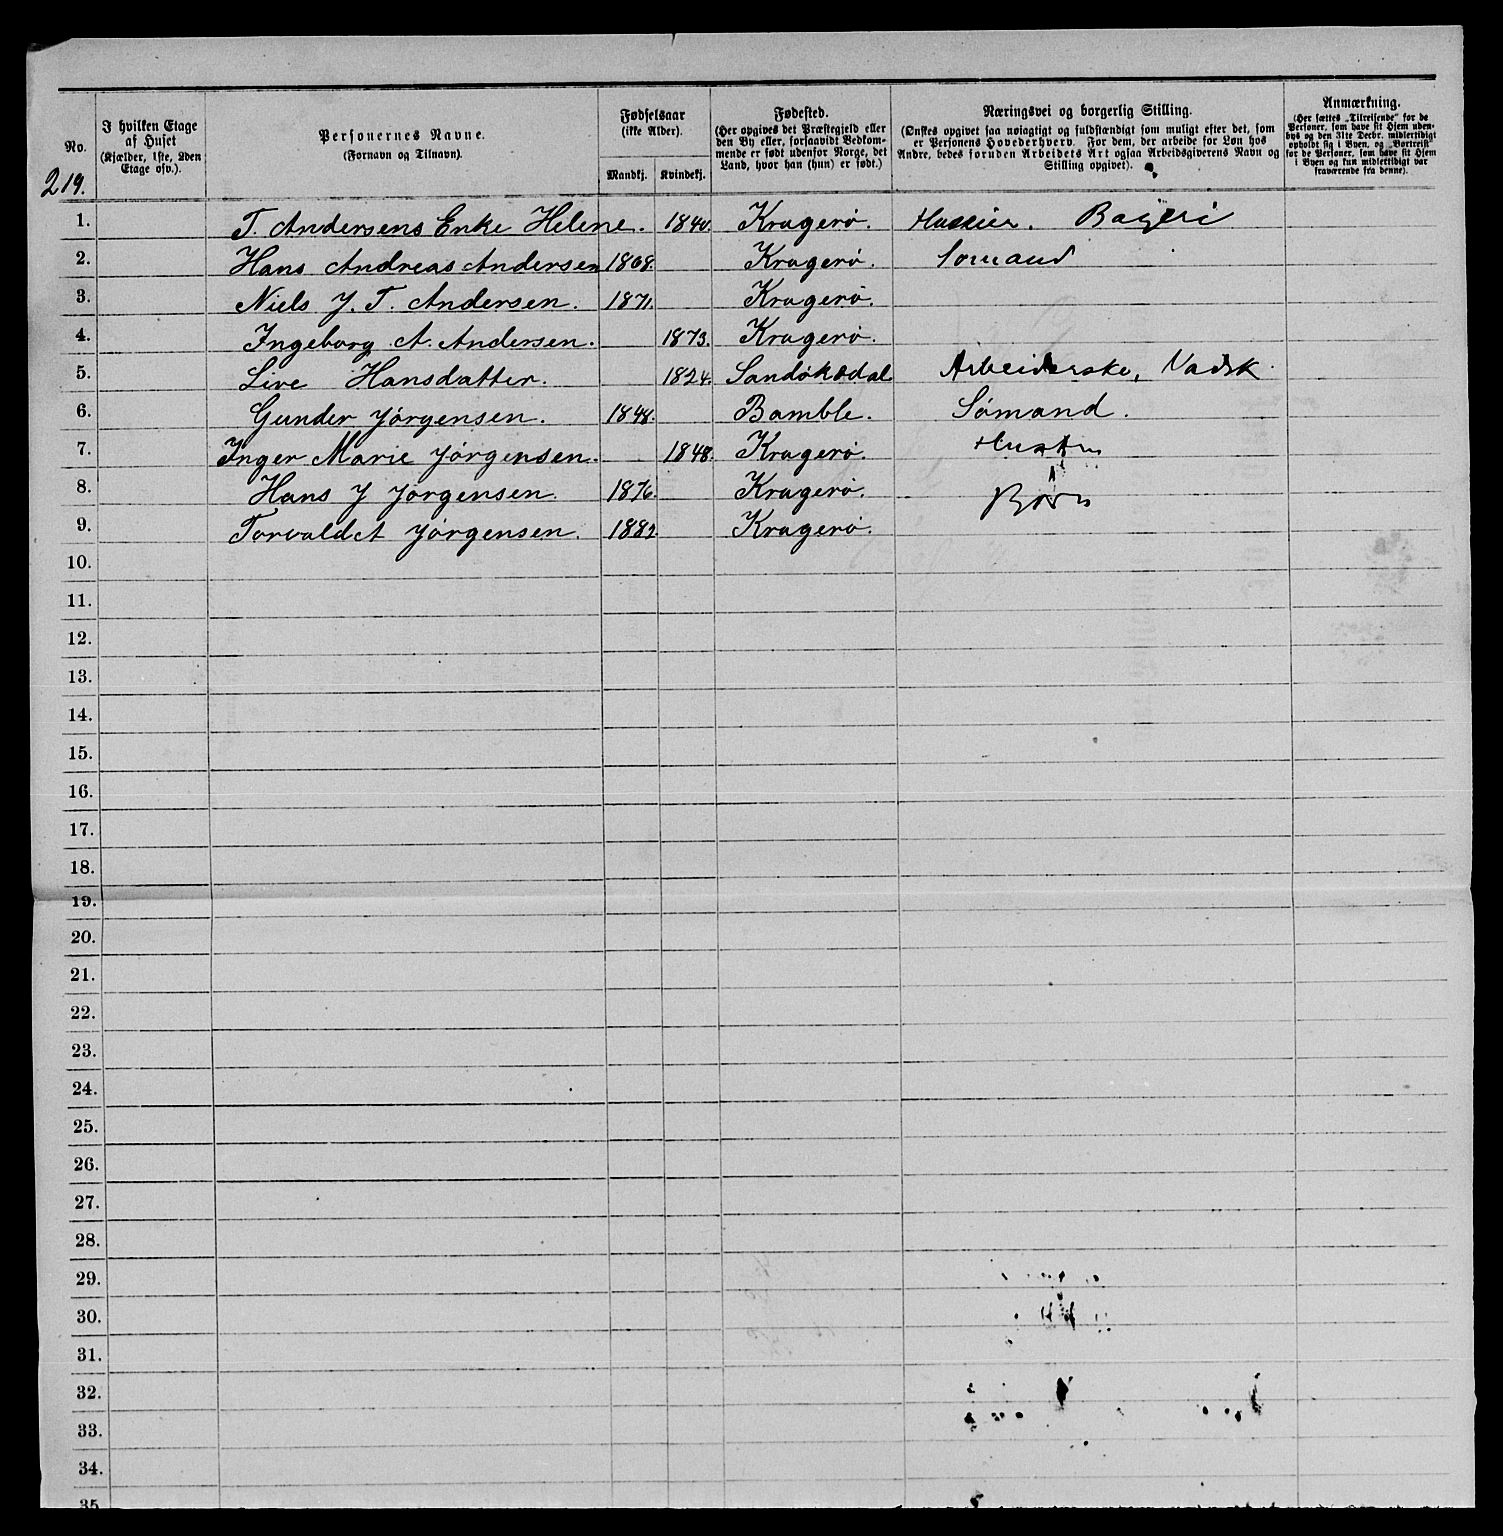 No.
219.
I hvilken Etage
af Huset
(Kjælder, 1ste, 2den
Etage osv.).
Personernes Navne.
(Fornavn og Tilnavn).
Fødselsaar
(ikke Alder).
Mandkj. Kvindekj.
Fødested.
(Her opgives det Præstegjeld eller
den By eller, forsaavidt Vedkom-
mende er født udenfor Norge, det
Land, hvor han (hun) er født.)
Næringsvei og borgerlig Stilling.
(Ønskes opgivet saa nøiagtigt og fuldstændigt som muligt efter det, som
er Personens Hovederhverv. For dem, der arbeide for Løn hos
Andre, bedes foruden Arbeidets Art ogsaa Arbeidsgiverens Navn og
Stilling opgivet).
Anmærkning.
(Her sættes „Tilreisende" for de
Personer, som have sit Hjem uden-
bys og den 31te Decbr. midlertidigt
opholdt sig i Byen, og „Bortreist"
for de Personer, som have sit Hjem
i Byen og kun midlertidigt var
fraværende fra denne).
1. T. Andersens Enke Helene. 1840. Kragerø. Bageri
2. Hans Andreas Andersen 1868. Kragerø. Sømand
3. Niels J. T. Andersen. 1871. Kragerø.
4. Ingeborg A. Andersen. 1873. Kragerø.
5. Live Hansdatter. 1824. Sandøkedal Arbeiderske, Vadsk
6. Gunder Jørgensen. 1848. Bamble. Sømand.
7. Inger Marie Jørgensen. 1848. Kragerø. Hustru
8. Hans J Jørgensen. 1876. Kragerø. Børn
9. Torvald Jørgensen. 1882 Kragerø.
10.
11.
12.
13.
14.
15.
16.
17.
18.
19.
20.
21.
22.
23.
24.
25.
26.
27.
28.
29.
30.
31.
32.
33.
34.
35